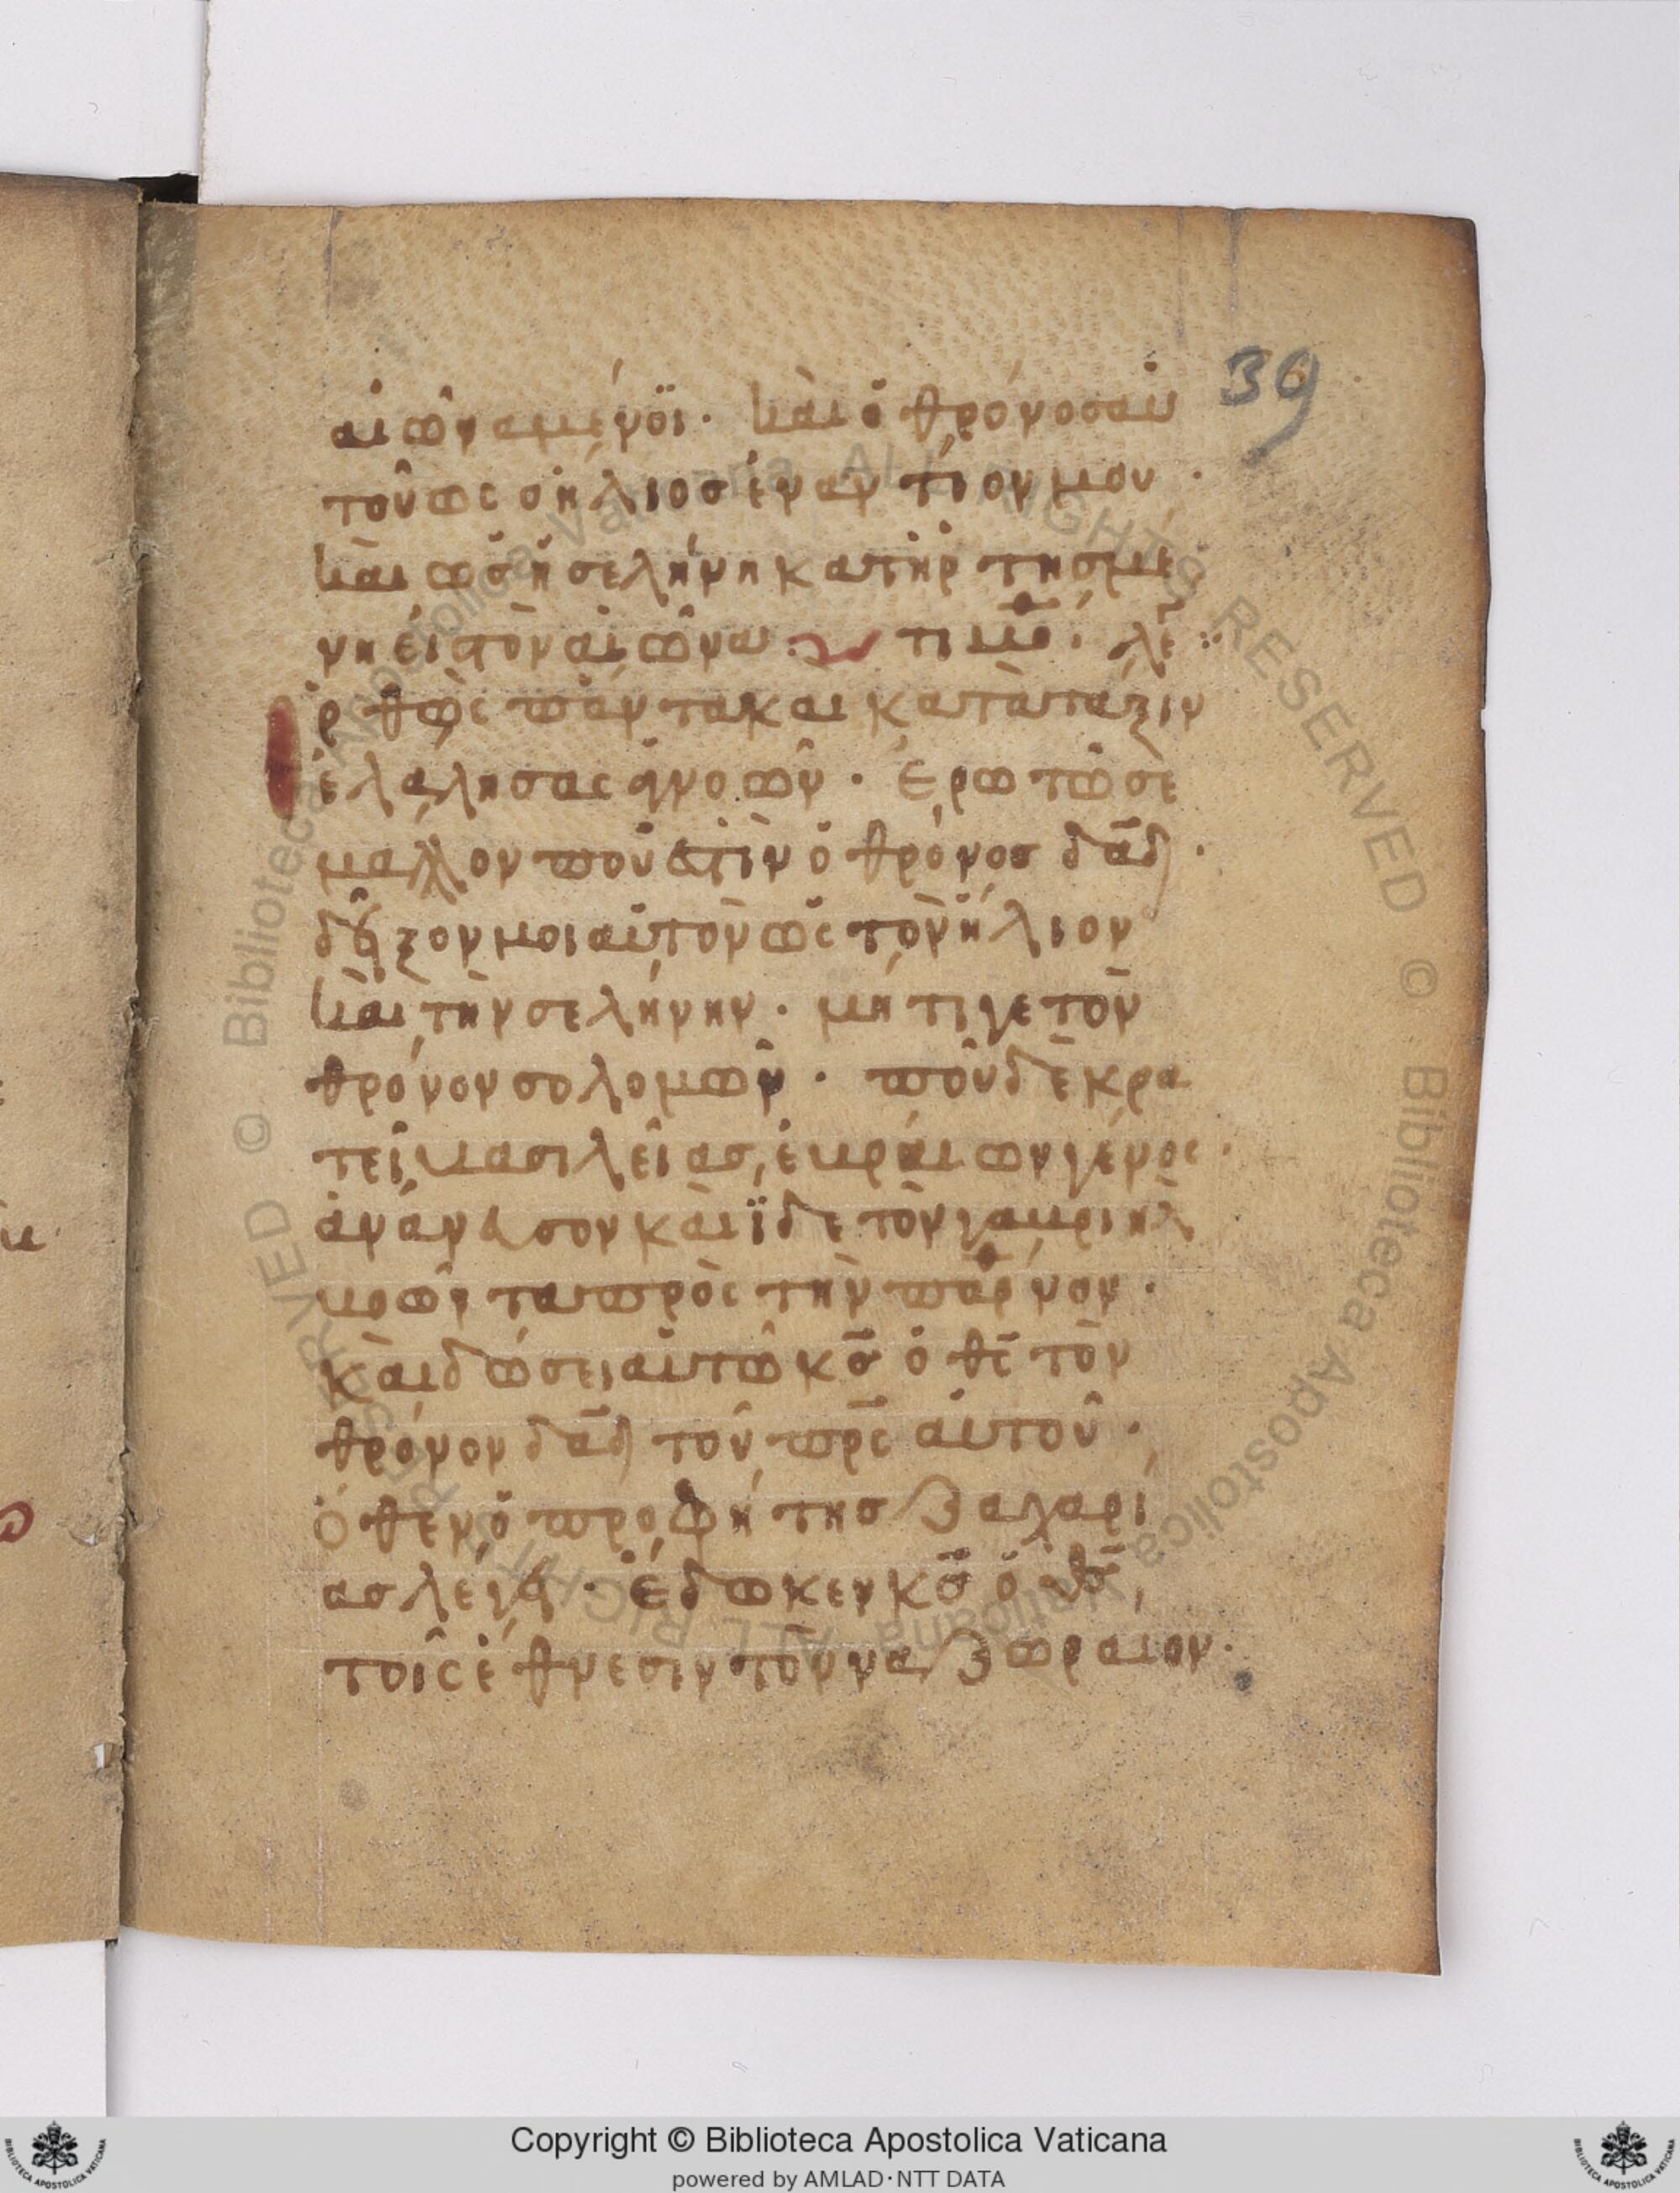 39
αἰῶνα μένει· καὶ ὁ θρόνοσ αὐ
τοῦ ὡς ὁ ἥλιοσ ἐναντίον μου·
καὶ ὡσ ἡ σελήνη κατηρτησμέ
νη εἰς τὸν αἰῶνα: τιμο̅· λε̅
ρθῶς πάντα καὶ κατὰ τάξιν
ἐλάλησας ἀνο̅ῶν· Ἐρωτῶ σὲ
μᾶλλον ποῦ ἐστὶν ὁ θρόνος δα̅δ·
δεῖξον μοι αὐτὸν ὡς τὸν ἥλιον
καὶ τὴν σελήνην· μήτι γε τὸν
θρόνον σολομῶν· ποῦ δὲ κρα
τεῖ βασιλεῖας, ἑβραίων γένος·
ἀνάνευσον καὶ ἴδε τὸν γαβριὴλ
βοῶντα πρὸς τὴν παρ̅νον·
καὶ δώσει αὐτῶ κσ̅ ὁ θς̅ τὸν
θρόνον δα̅δ τοῦ πρς̅ αὐτοῦ·
Ὅθεν ὁ προφήτησ Ζαχαρί
ασ λέγει· Ἔδωκεν κσ̅ ὁ θσ̅,
τοῖς ἔθνεσιν τὸν ναζωραῖον·
Copyright © Biblioteca Apostolica Vaticana
powered by AMLAD·NTT DATA